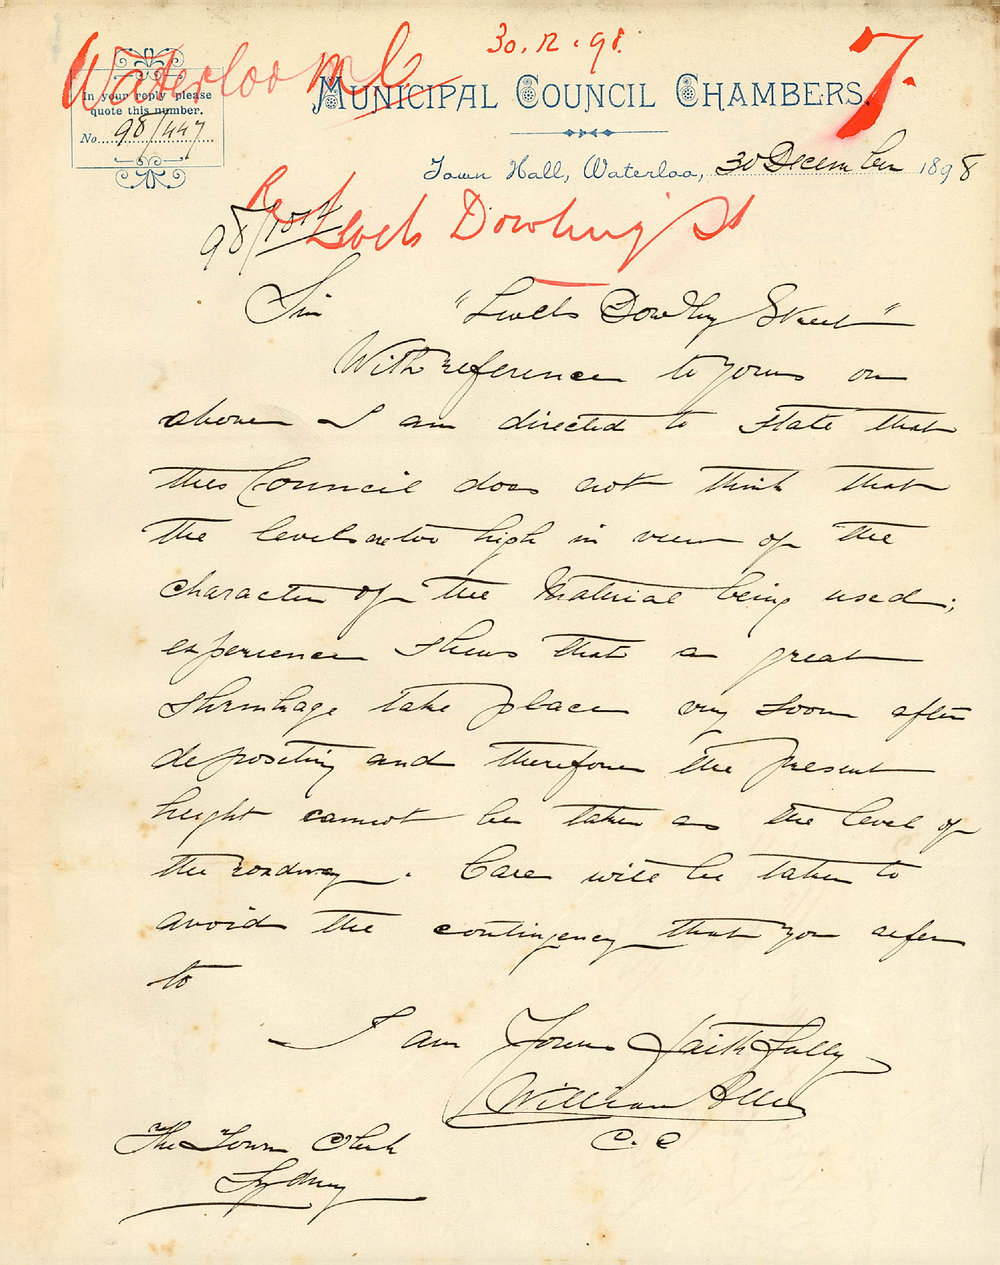 30.12.98.
7.
Waterloo M C
MUNICIPAL COUNCIL CHAMBERS.
In your reply please
quote this number.
No. 98/447
Town Hall, Waterloo, 30 December 1898
Re
98/1014
Levels Dowling St
Sir "Levels Dowling Street"
With reference to yours on
above I am directed to state that
this Council does not think that
the levels are too high in view of the
character of the Material being used;
experience shews that a great
shrinkage take place very soon after
depositing and therefore the present
height cannot be taken as the level of
the roadway. Care will be taken to
avoid the contingency that you refer
to
I am Yours faithfully
William
C.C
The Town Clerk
Sydney